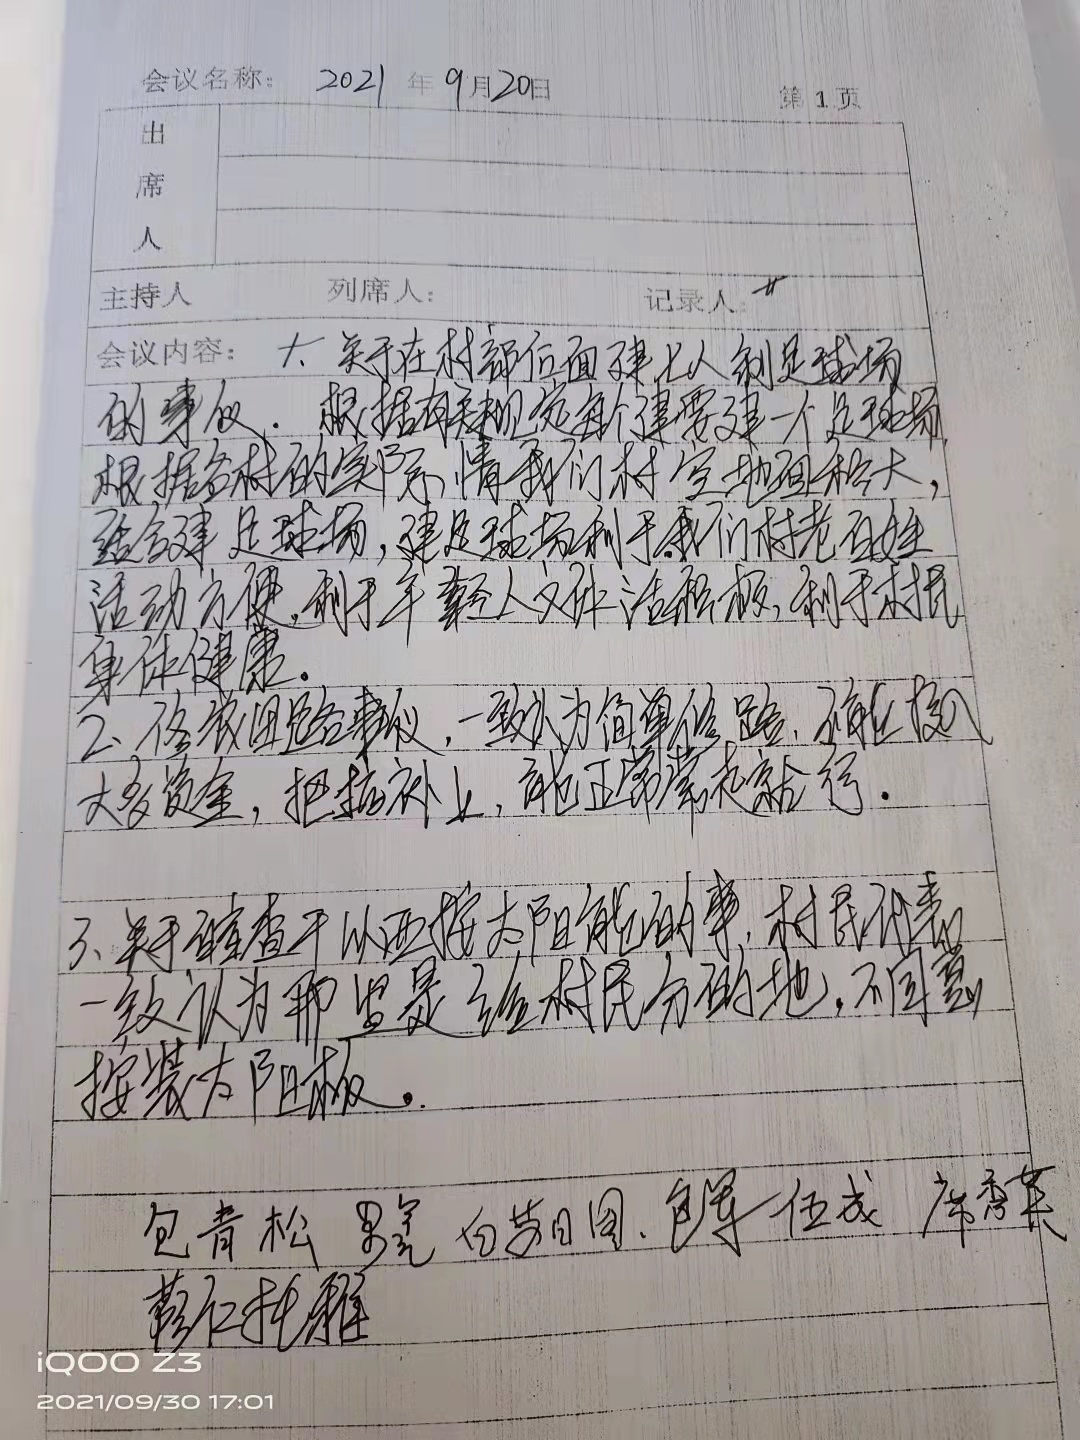 会议名称: 2021年9月20日
第1页
出
席
人
主持人 列席人: 记录人:
会议内容: 1、关于在村部后面建七人制足球场
的事仪. 根据有关规定每个建要建一个足球场,
根据各村的实际,情我们村空地面积大,
适合建足球场,建足球场利于我们村老百姓
活动方便,利于年轻人文体活积极,利于村民
身体健康.
2、修 路事仪,一致认为简单修路,不能投入
太多资金,把 补上,能正常 行.
3、关于 查干 以西按太阳能的事,村民代表
一致认为那 是给村民分的地,不同意
按装太阳板.
包青松 白 图. 包军 伍成 席秀英
仁托雅
iQOO Z3
2021/09/30 17:01